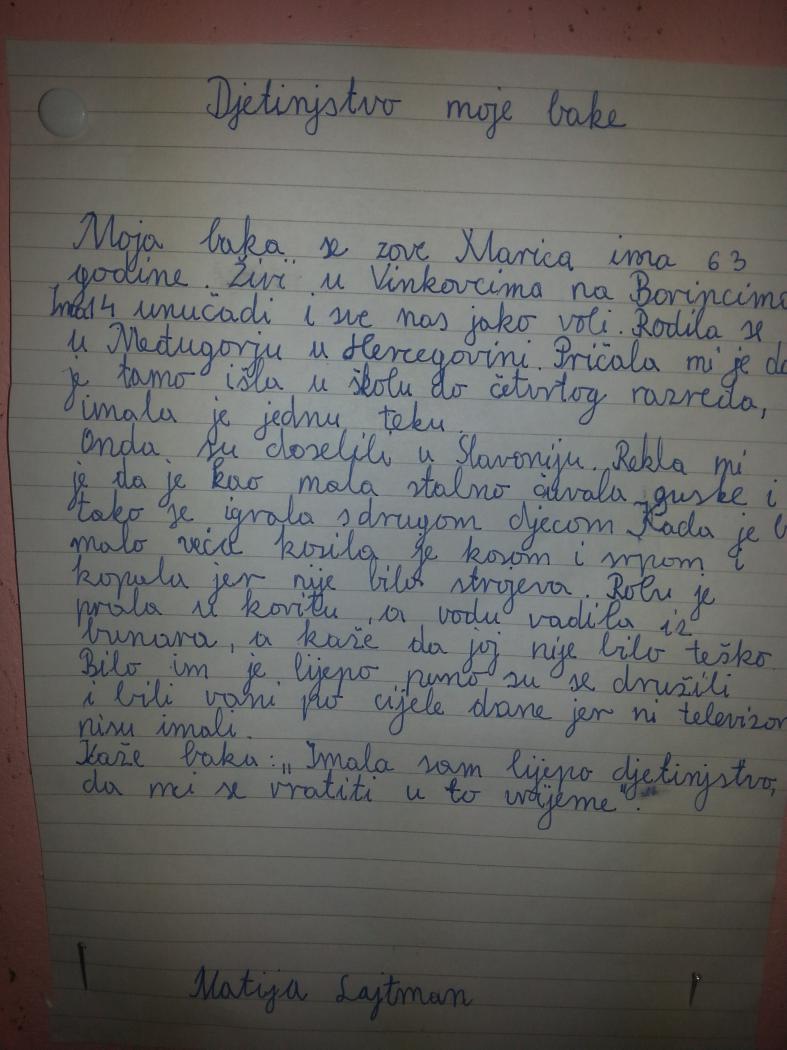 Djetinjstvo moje bake
Moja baka se zove Marica ima 63
godine. Živi u Vinkovcima na
Ima 14 unučadi i sve nas jako voli. Rodila se
u Međugorju u Hercegovini. Pričala mi je da
je tamo išla u školu do četvrtog razreda,
imala je jednu teku.
Onda su doselili u Slavoniju. Rekla mi
je da je kao mala stalno čuvala guske i
tako se igrala sdrugom djecom. Kada je
malo veća kosila je kosom i srpom i
kopala jer nije bilo strojeva. Robu je
prala u koritu, a vodu vadila iz
bunara, a kaže da joj nije bilo teško.
Bilo im je lijepo puno su se družili
i bili vani po cijele dane jer ni televizor
nisu imali.
Kaže baka: „Imala sam lijepo djetinjstvo,
da mi se vratiti u to vrijeme".
Matija Lajtman